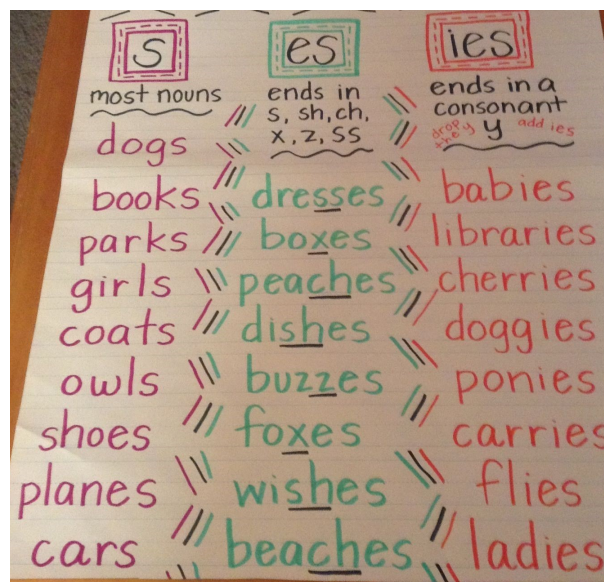 s
most nouns
dogs
books
parks
girls
coats
owls
shoes
planes
cars
es
ends in
s, sh, ch,
x, z, ss
dresses
boxes
peaches
dishes
buzzes
foxes
wishes
beaches
ies
ends in a
consonant
y
drop
the y
add ies
babies
libraries
cherries
doggies
ponies
carries
flies
ladies